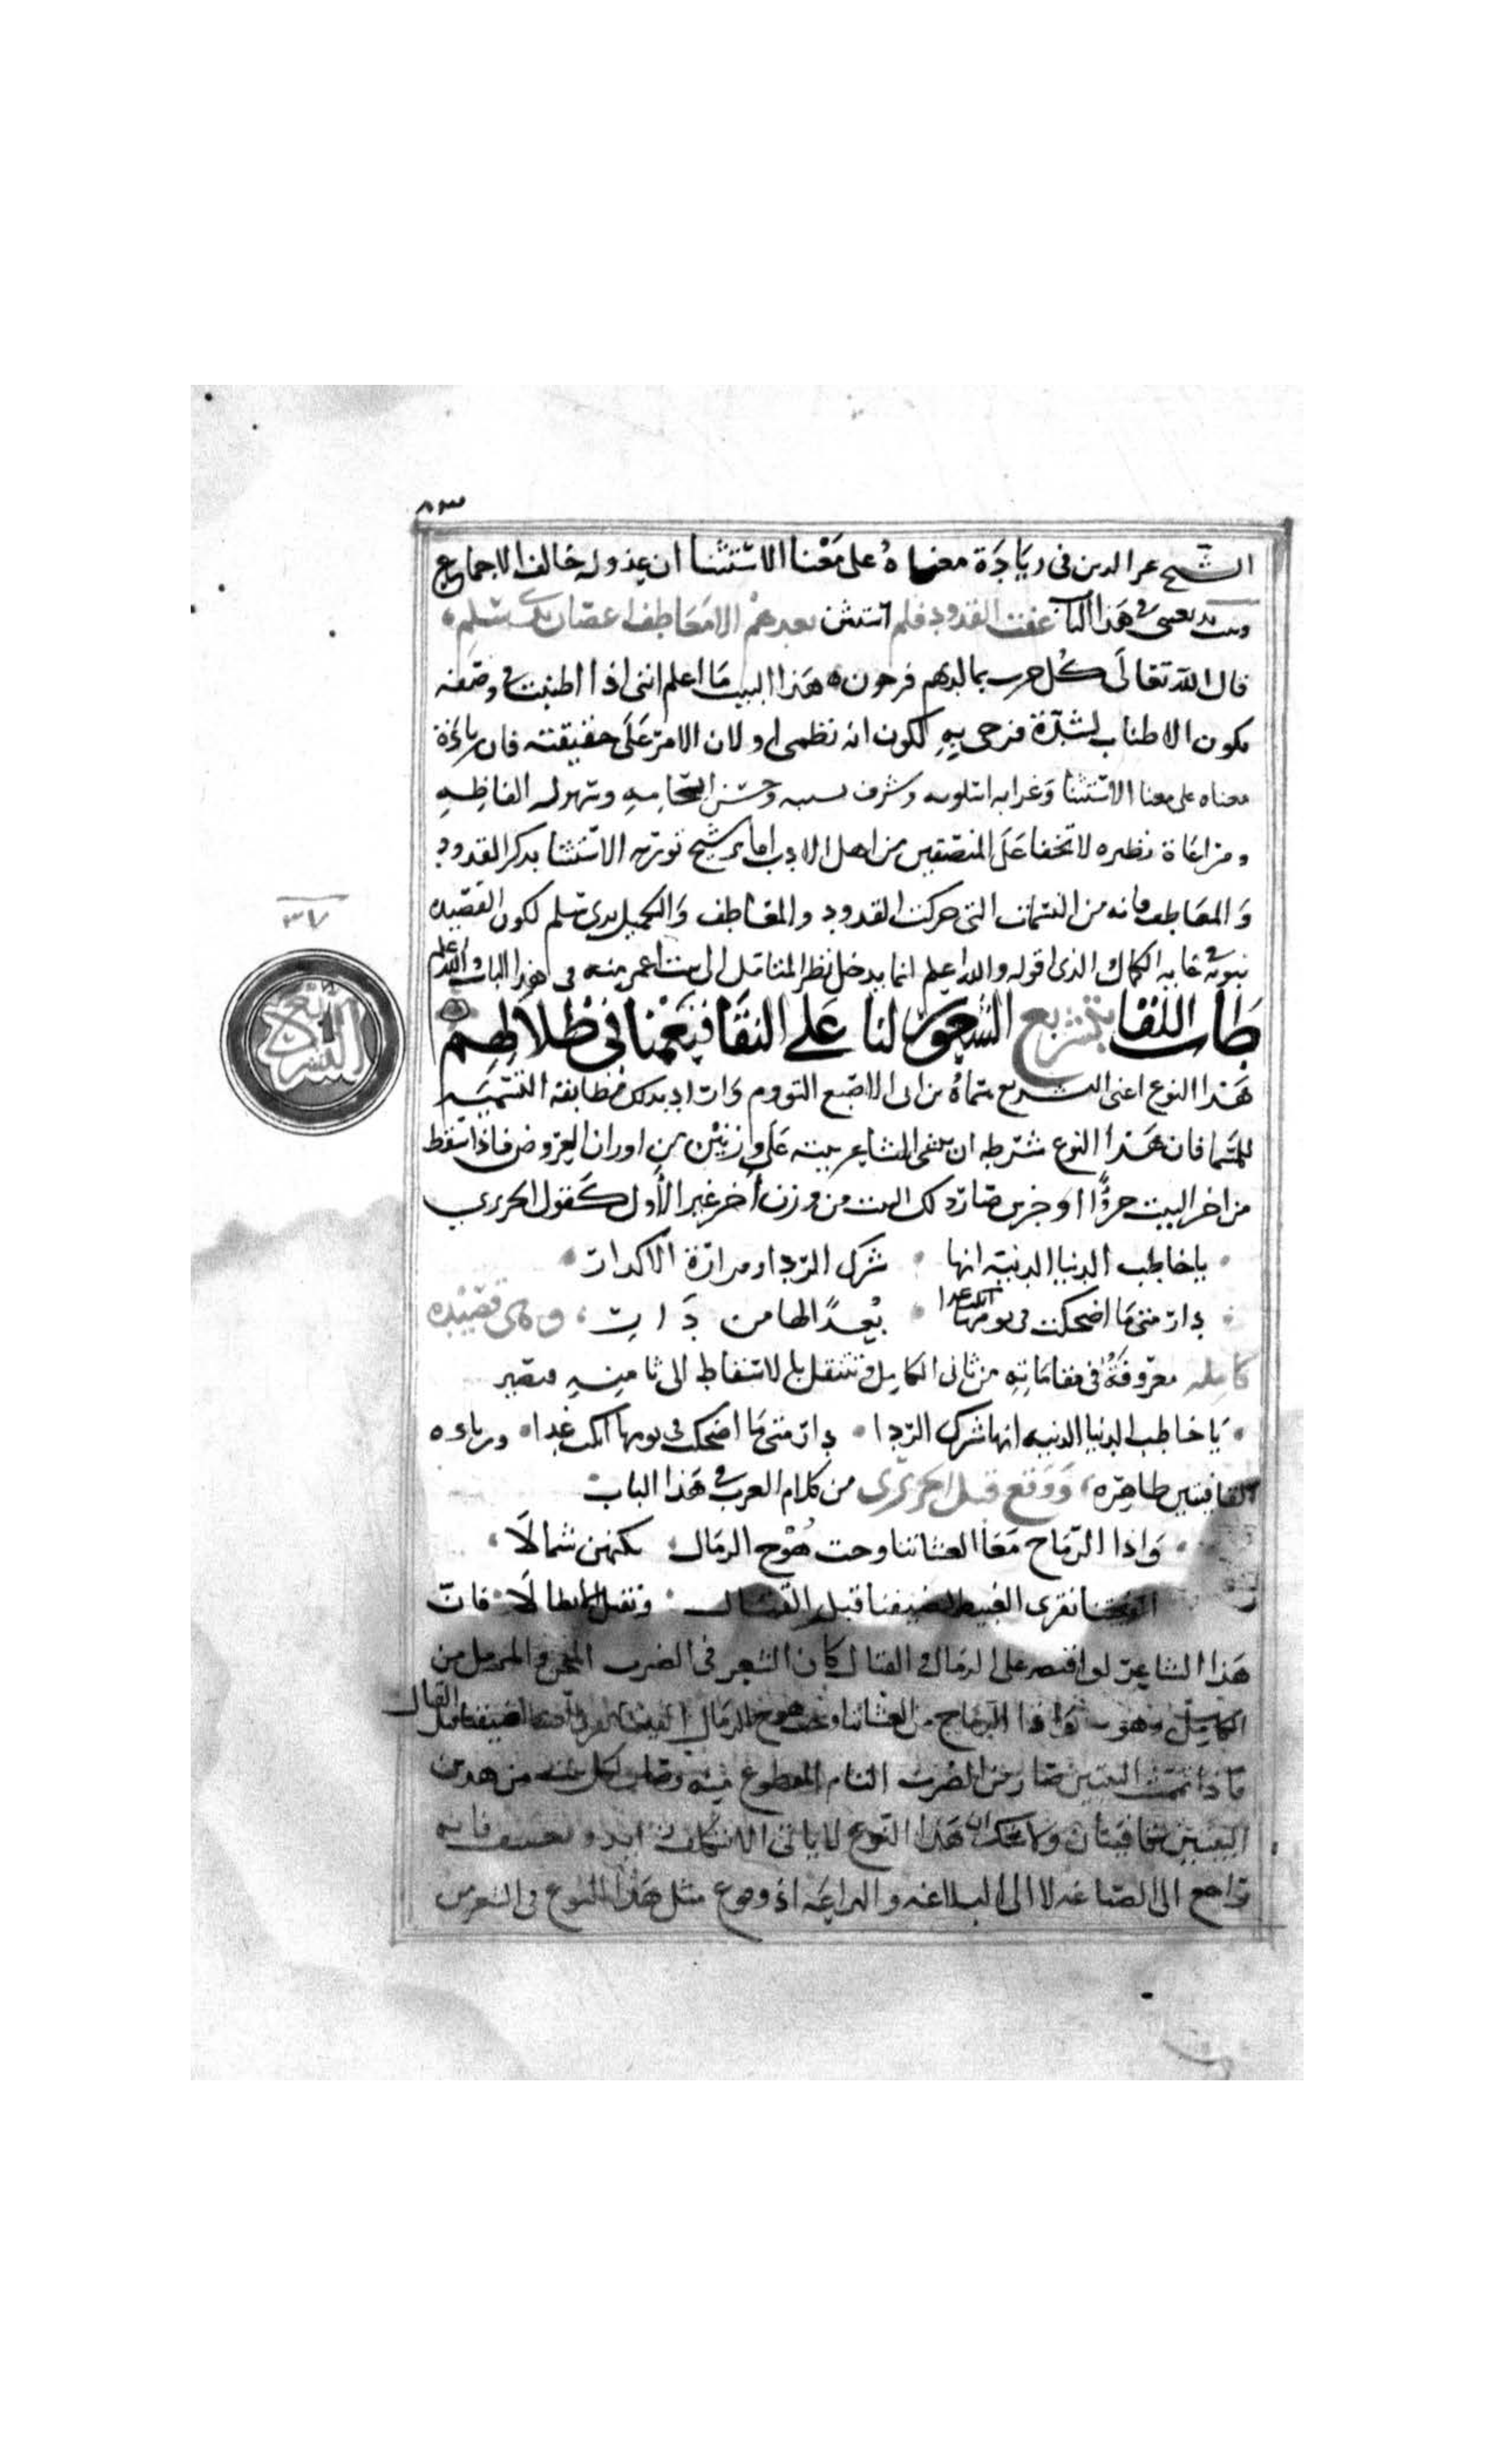 ٨٣
الشيخ عز الدين فى زيادة معناه على معنا الاستثنا ان عذوله خالف الاجماع
وبيت بديعيتى فى هذا الباب عفت القدود فلم استثن بعدهم الا معاطف اغصان بذى سلم
قال الله تعالى كل حزب بما لديهم فرحون هذا البيت ما اعلم اننى اذا اطنبت فى وصفه
يكون الاطناب لشدة فرحى به لكون انه نظمى او لان الامر على حقيقته فان زيادة
معناه على معنا الاستثنا وغرابه اسلوبه وشرف نسيبه وحسن انسجامه وسهوله الفاظه
ومراعاة نظيره لا تخفا على المنصفين من اهل الادب اما ترشيح توريه الاستثنا بذكر القدود
والمعاطف فانه من النسمات التى حركت القدود والمعاطف والتكميل بذى سلم لكون القصيده
نبويه غايه الكمال الذى اقوله والله اعلم انما يدخل نظر المتامل الى بيت اعمر منه فى هذا الباب والله اعلم
٣٧
التشريع
طاب اللقا بتشريع الشعور لنا على النقا فنعمنا فى ظلالهم
هذا النوع اعنى التشريع سماه بن ابى الاصبع التووم واراد بذلك مطابقة التسميه
للمسما فان هذا النوع شرطه ان يبنى الشاعر بيته على وزنين من اوزان العروض فاذا اسقط
من اخر البيت جزؤًا او جزين صار ذلك البيت من وزن اخر غير الأول كقول الحريرى
يا خاطب الدنيا الدنيه انها شرك الردا وقرارة الاكدار
دار متى ما اضحكت فى يومها ابكت غدا بعدًا لها من دار وهى قصيده
كامله معروفة فى مقاماته من ثانى الكامل وتنتقل بالاسقاط الى ثامنه فتصير
يا خاطب الدنيا الدنيه انها شرك الردا دار متى ما اضحكت فى يومها ابكت غدا وزياده
القافيتين ظاهره ووقع قبل الحريرى من كلام العرب فى هذا الباب
واذا الرياح مع العشا تناوحت هوج الرمال بكثبهن شمالا
الفيتنا نقرى الغبيط لضيفنا قبل القتال ونقتل الابطالا فان
هذا الشاعر لو اقتصر على الرمال والقتال كان الشعر فى الضرب المجزو المرفل من
الكامل وهو واذا الرياح مع العشا تناوحت هوج الرمال الفيتنا نقرى الغبيط لضيفنا قبل القتال
فاذا تمت البيتين صار من الضرب التام المقطوع منه وصار لكل بيت من هدين
البيتين قافيتان ولا شك ان هذا النوع لا ياتى الا بتكلف زايد وتعسف فانه
راجع الى الصناعه لا الى البلاغه والبراعه اذ وقوع مثل هذا النوع فى الشعر من